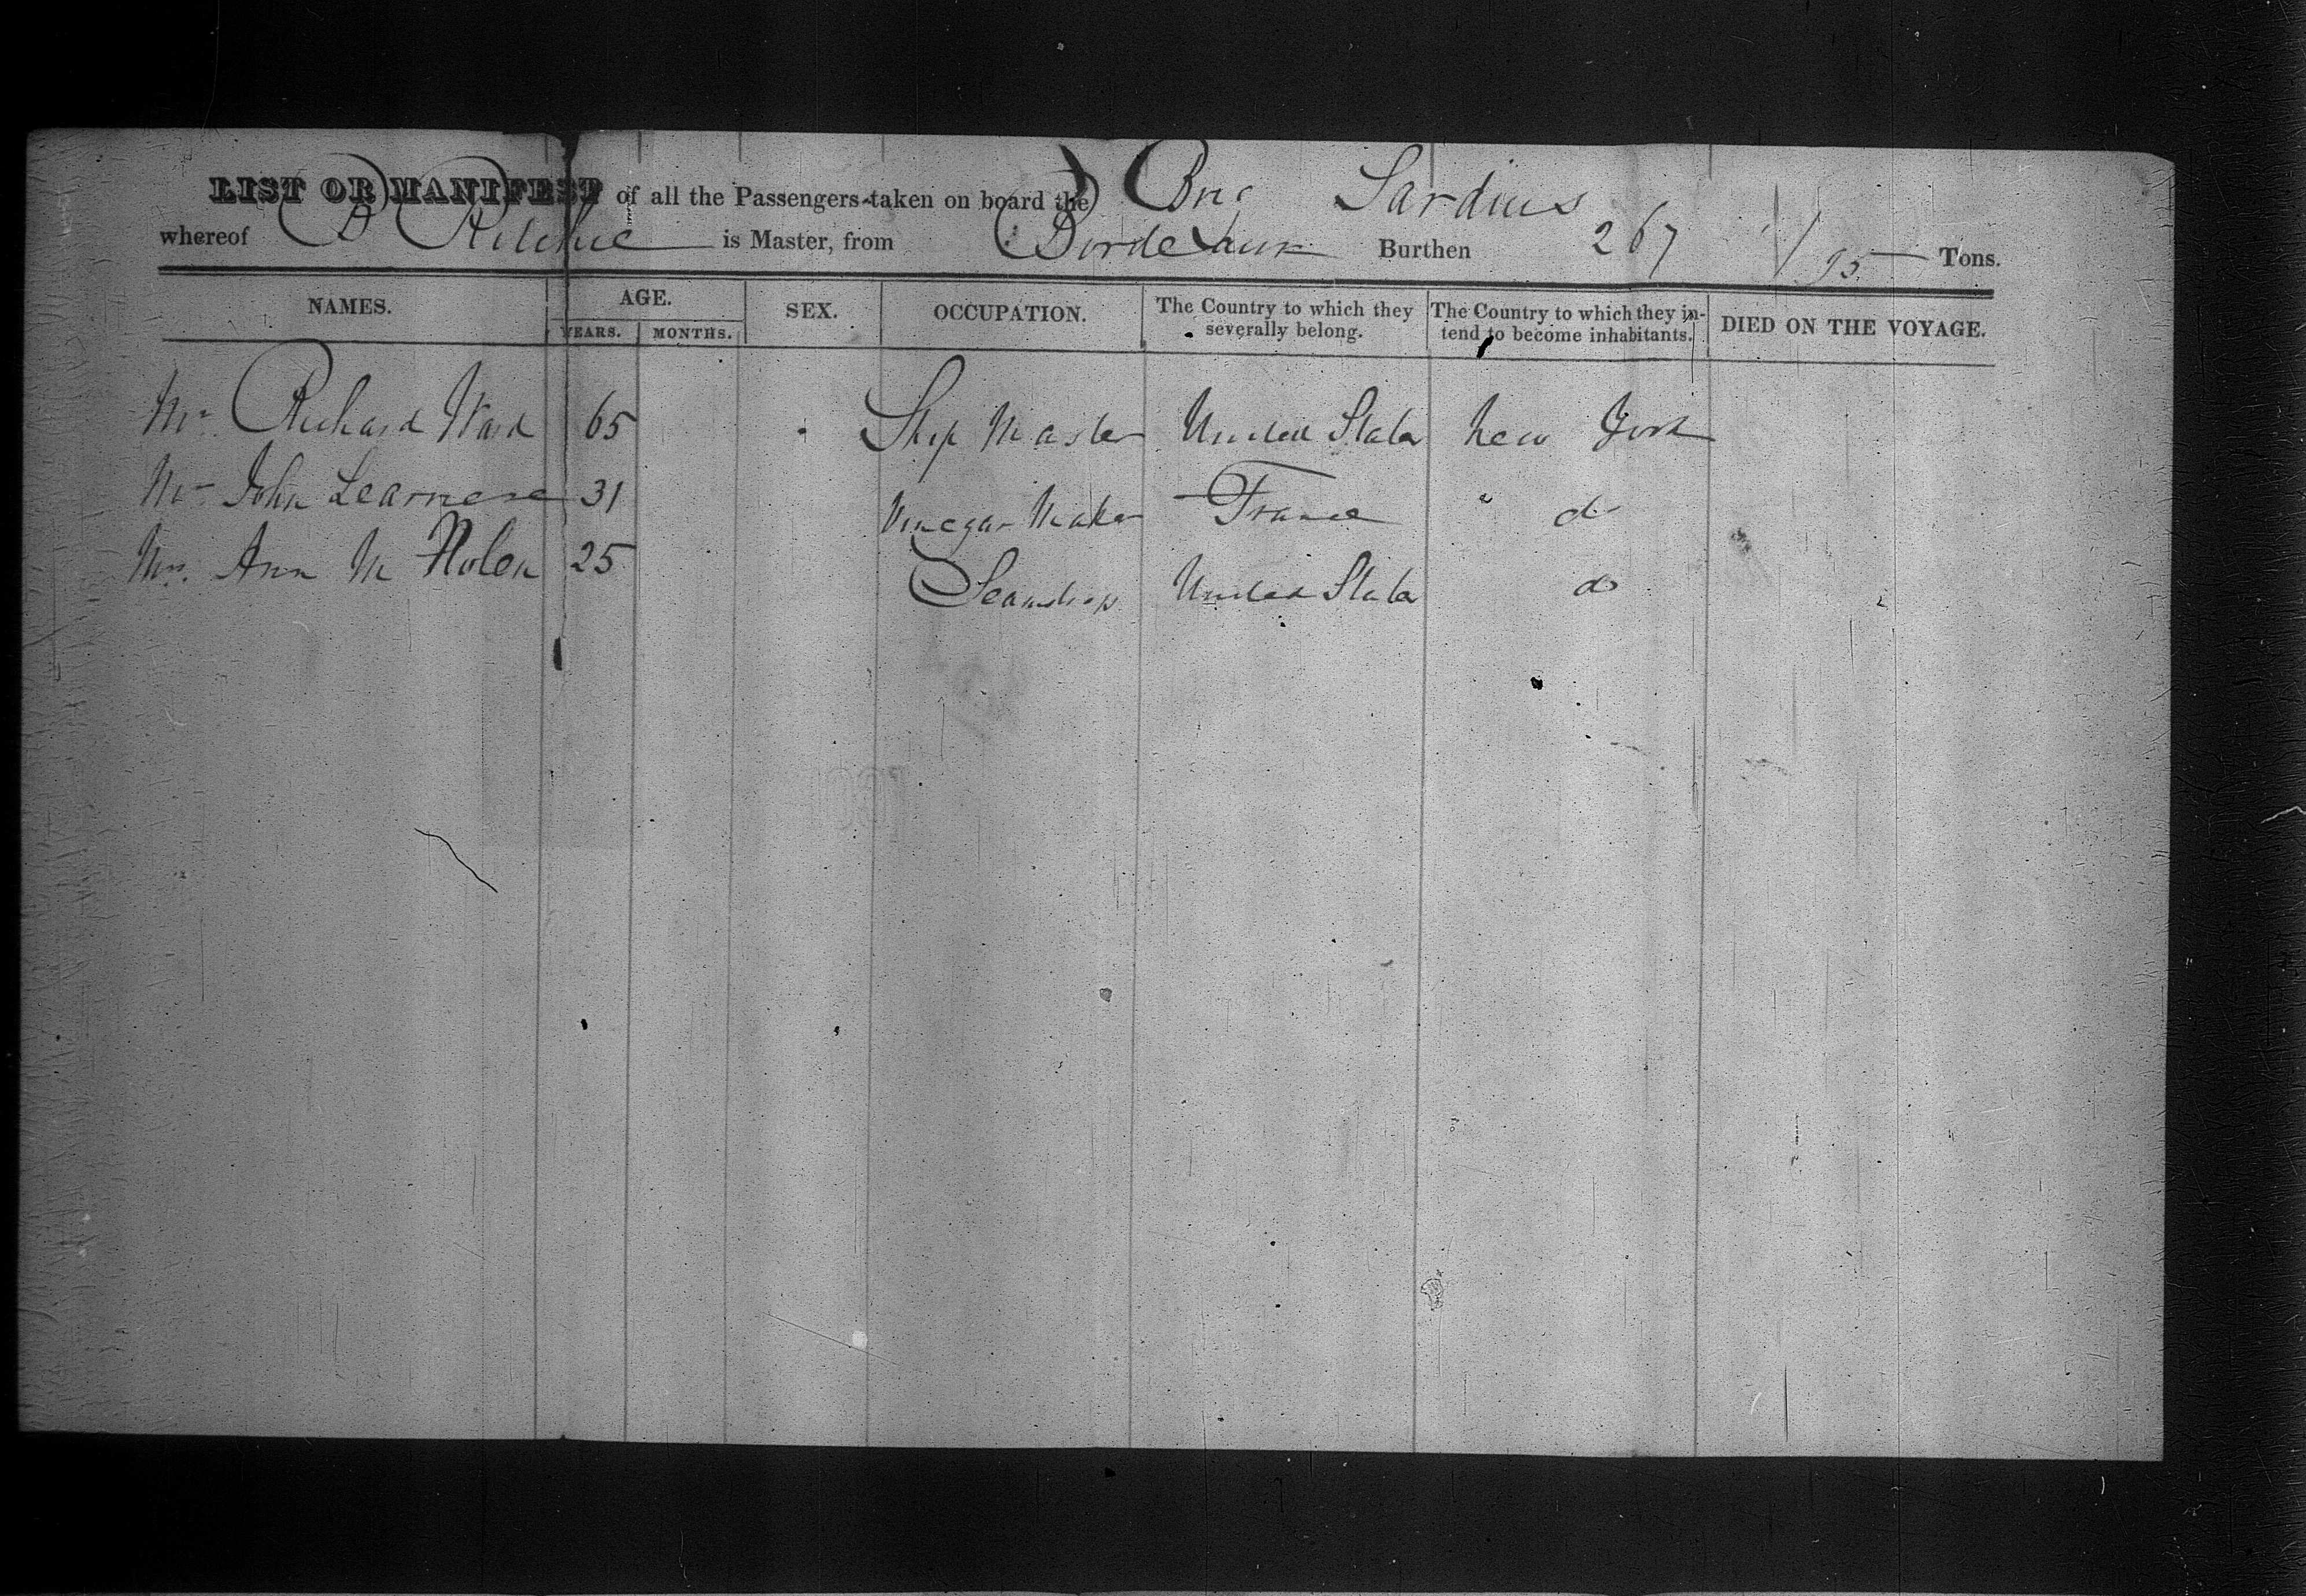 LIST OR MANIFEST of all the Passengers taken on board the Brig Sardius
whereof D Ritchie is Master, from Bordeaux Burthen 267 /95 Tons.
NAMES. AGE. SEX. OCCUPATION. The Country to which they severally belong. The Country to which they intend to become inhabitants. DIED ON THE VOYAGE.
YEARS. MONTHS.
Mr Richard Ward 65 Ship Master United States New York
Mr John 31 Vinegar Maker France " do
Mrs. Ann M Nolen 25 United States do